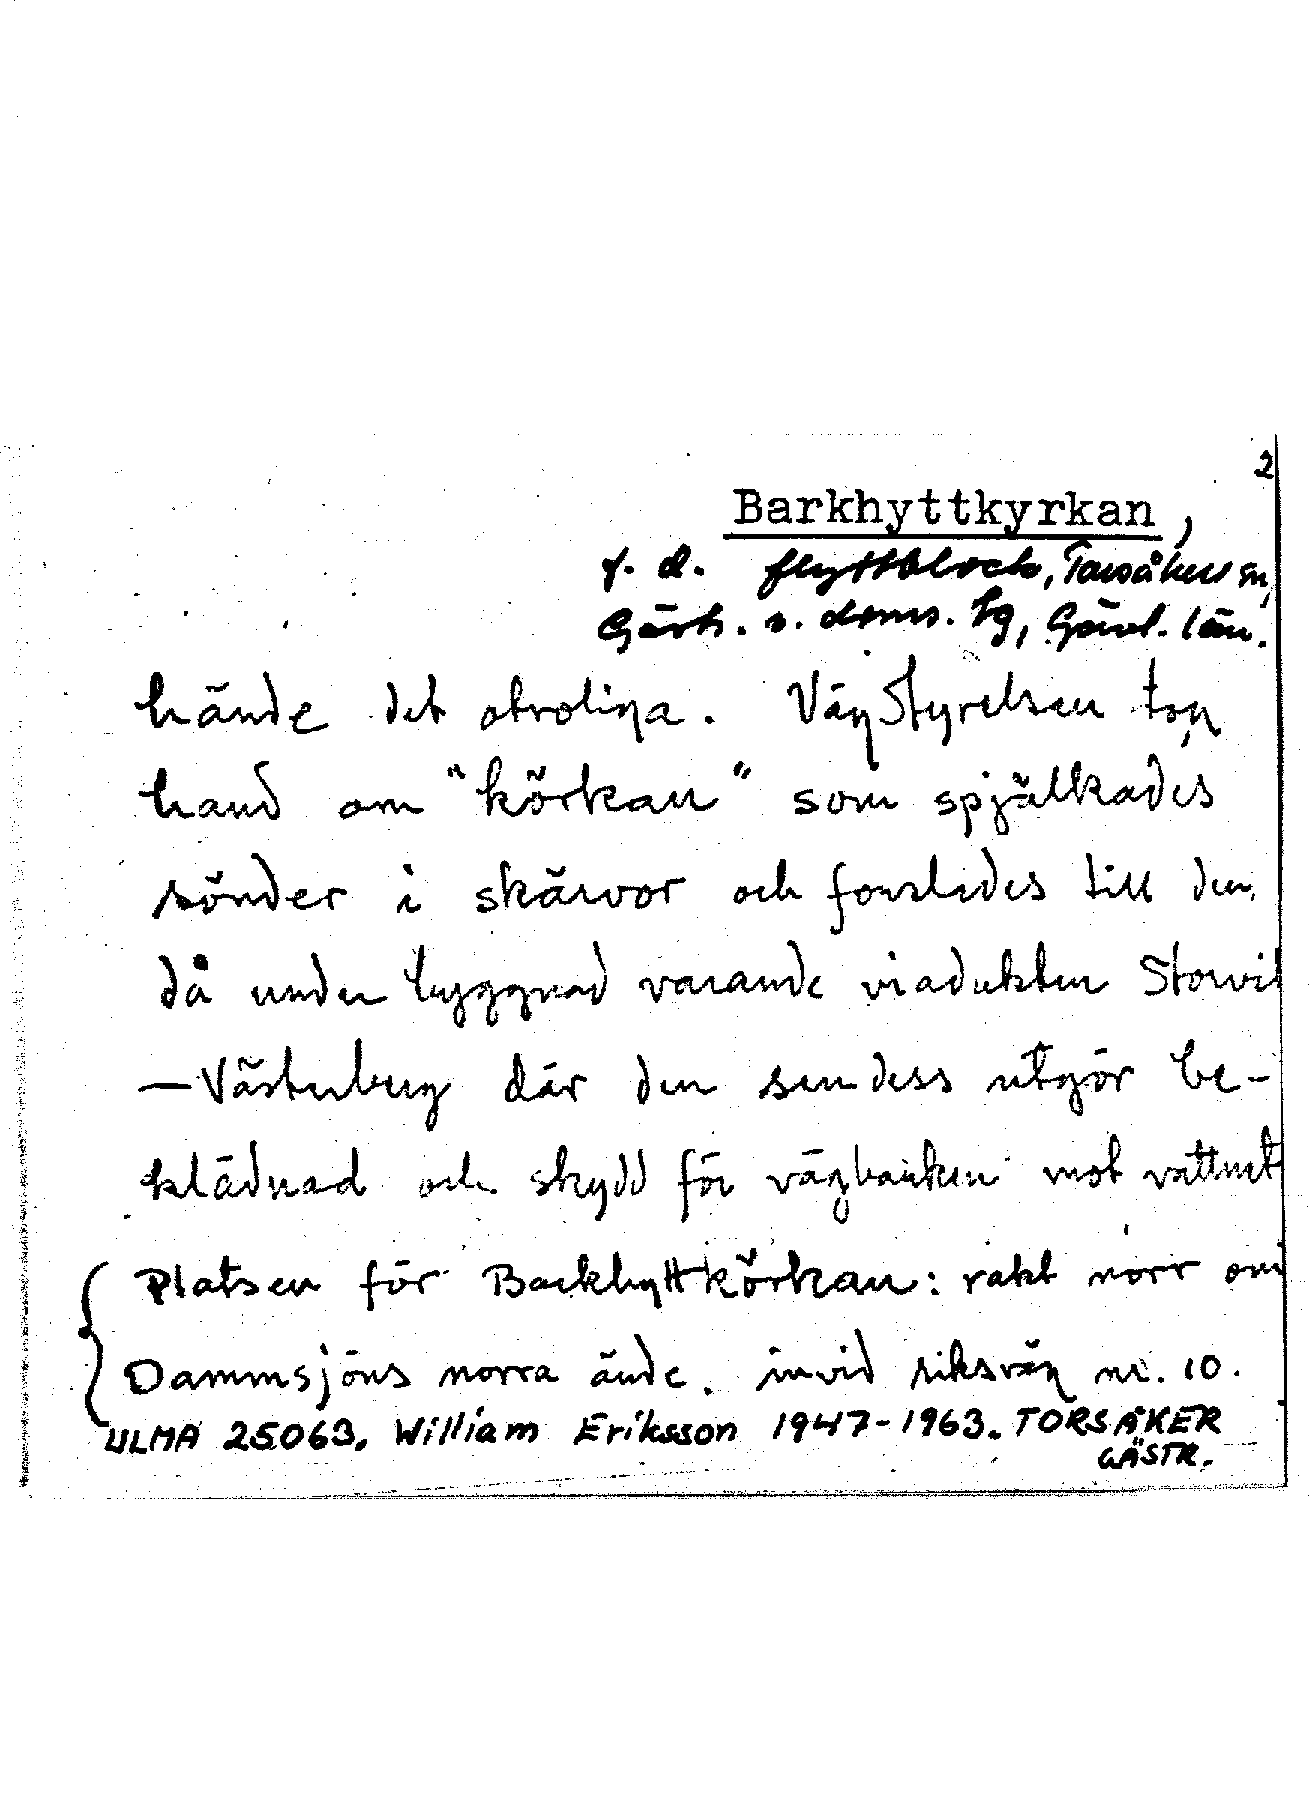 2
Barkhyttkyrkan,
f. d. flyttblock, Torsåkers sn,
Gästr. ö. doms. tg, Gävl. län.
hände det otroliga. Vägstyrelsen tog
hand om "körkan" som spjälkades
sönder i skärvor och forslades till den
då under byggnad varande viadukten Storvik
— Västerberg där den sen dess utgör be-
klädnad och skydd för vägbanken mot vattnet
Platsen för Barkhyttkörkan: rakt norr om
Dammsjöns norra ände. invid riksväg nr. 10.
ULMA 25063. William Eriksson 1947-1963. TORSÅKER
GÄSTR.